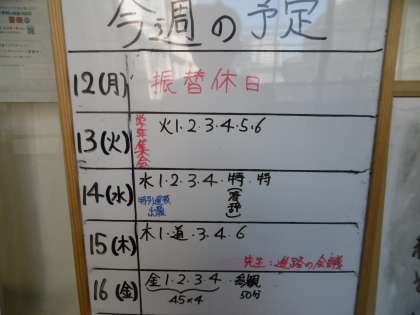 今週の予定
12(月) 振替休日
13(火) 学年集会 火1・2・3・4・5・6
14(水) 水1・2・3・4・特・特
特別選抜出願
15(木) 木1・道・3・4・6
先生:進路の会議
16(金) 金1・2・3・4
45×4
50分